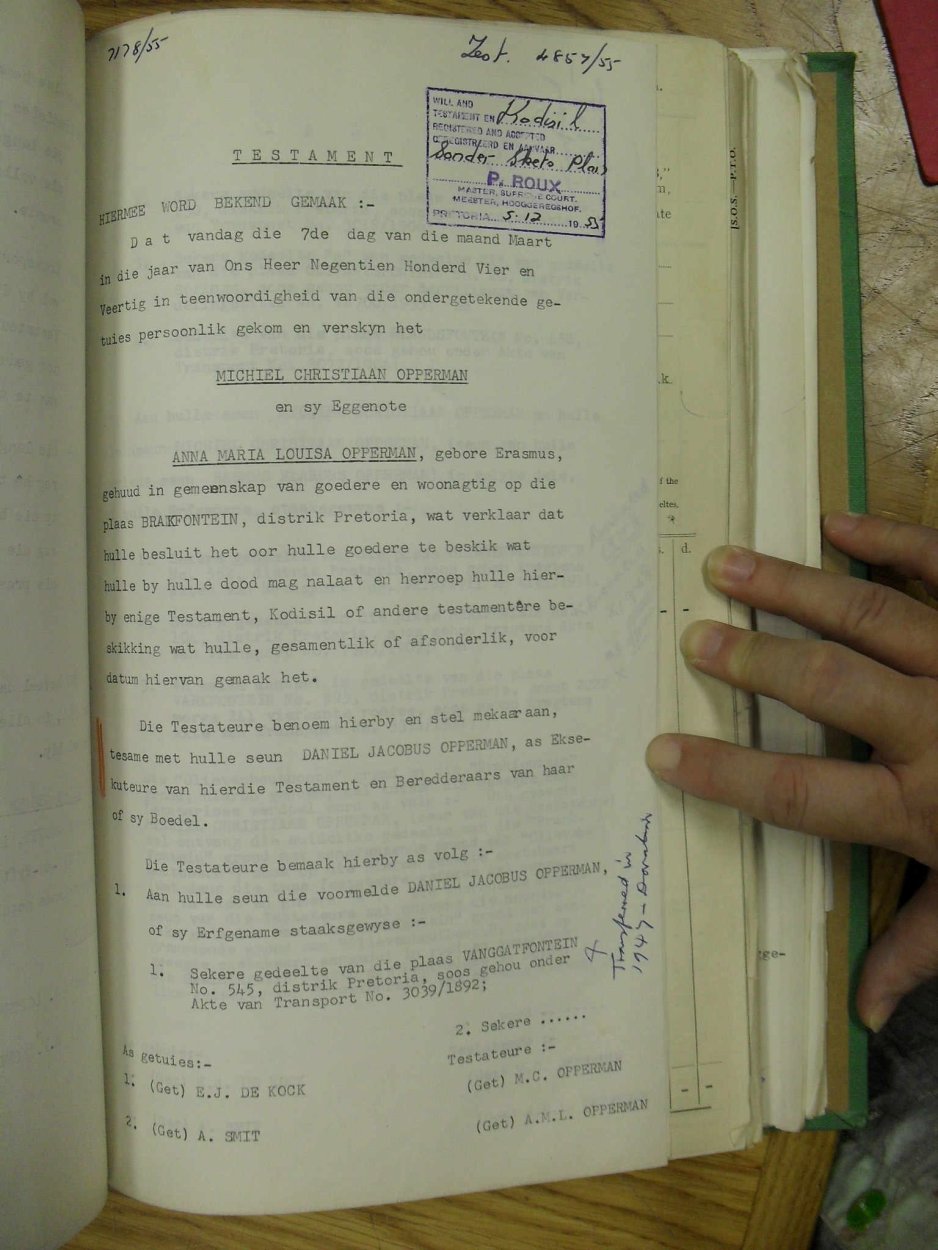 7178/55
Test. 4857/55
WILL AND
TESTAMENT EN Kodisil
REGISTERED AND ACCEPTED
GEREGISTREERD EN AANVAAR
Sonder Skets Plan
P. ROUX
MASTER, SUPREME COURT.
MEESTER, HOOGGEREGSHOF.
PRETORIA 5.12 1955
TESTAMENT
HIERMEE WORD BEKEND GEMAAK :-
Dat vandag die 7de dag van die maand Maart
in die jaar van Ons Heer Negentien Honderd Vier en
Veertig in teenwoordigheid van die ondergetekende ge-
tuies persoonlik gekom en verskyn het
MICHIEL CHRISTIAAN OPPERMAN
en sy Eggenote
ANNA MARIA LOUISA OPPERMAN, gebore Erasmus,
gehuud in gemeenskap van goedere en woonagtig op die
plaas BRAKFONTEIN, distrik Pretoria, wat verklaar dat
hulle besluit het oor hulle goedere te beskik wat
hulle by hulle dood mag nalaat en herroep hulle hier-
by enige Testament, Kodisil of andere testamentêre be-
skikking wat hulle, gesamentlik of afsonderlik, voor
datum hiervan gemaak het.
Die Testateure benoem hierby en stel mekaar aan,
tesame met hulle seun DANIEL JACOBUS OPPERMAN, as Ekse-
kuteure van hierdie Testament en Beredderaars van haar
of sy Boedel.
Die Testateure bemaak hierby as volg :-
1. Aan hulle seun die voormelde DANIEL JACOBUS OPPERMAN,
of sy Erfgename staaksgewyse :-
1. Sekere gedeelte van die plaas VANGGATFONTEIN
No. 545, distrik Pretoria, soos gehou onder
Akte van Transport No. 3039/1892;
Transferred in
1947 - Donatunis
2. Sekere ......
As getuies:-
Testateure :-
1. (Get) E.J. DE KOCK
(Get) M.C. OPPERMAN
2. (Get) A. SMIT
(Get) A.M.L. OPPERMAN
[s.o.s.—P.T.O.
k.
f the
eltes,
s. d.
ge-